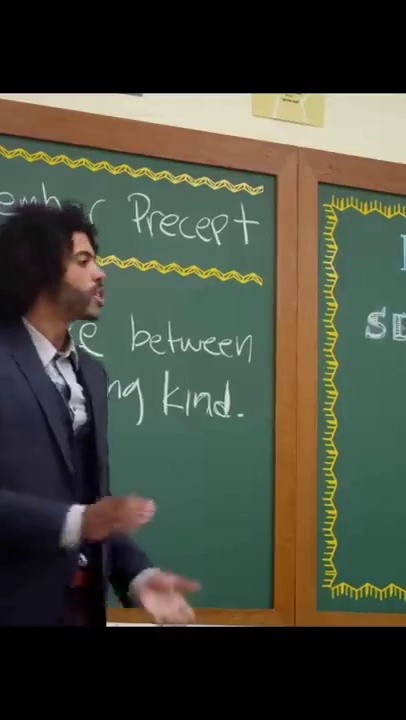 ember Precept
e between
ng kind.
SE